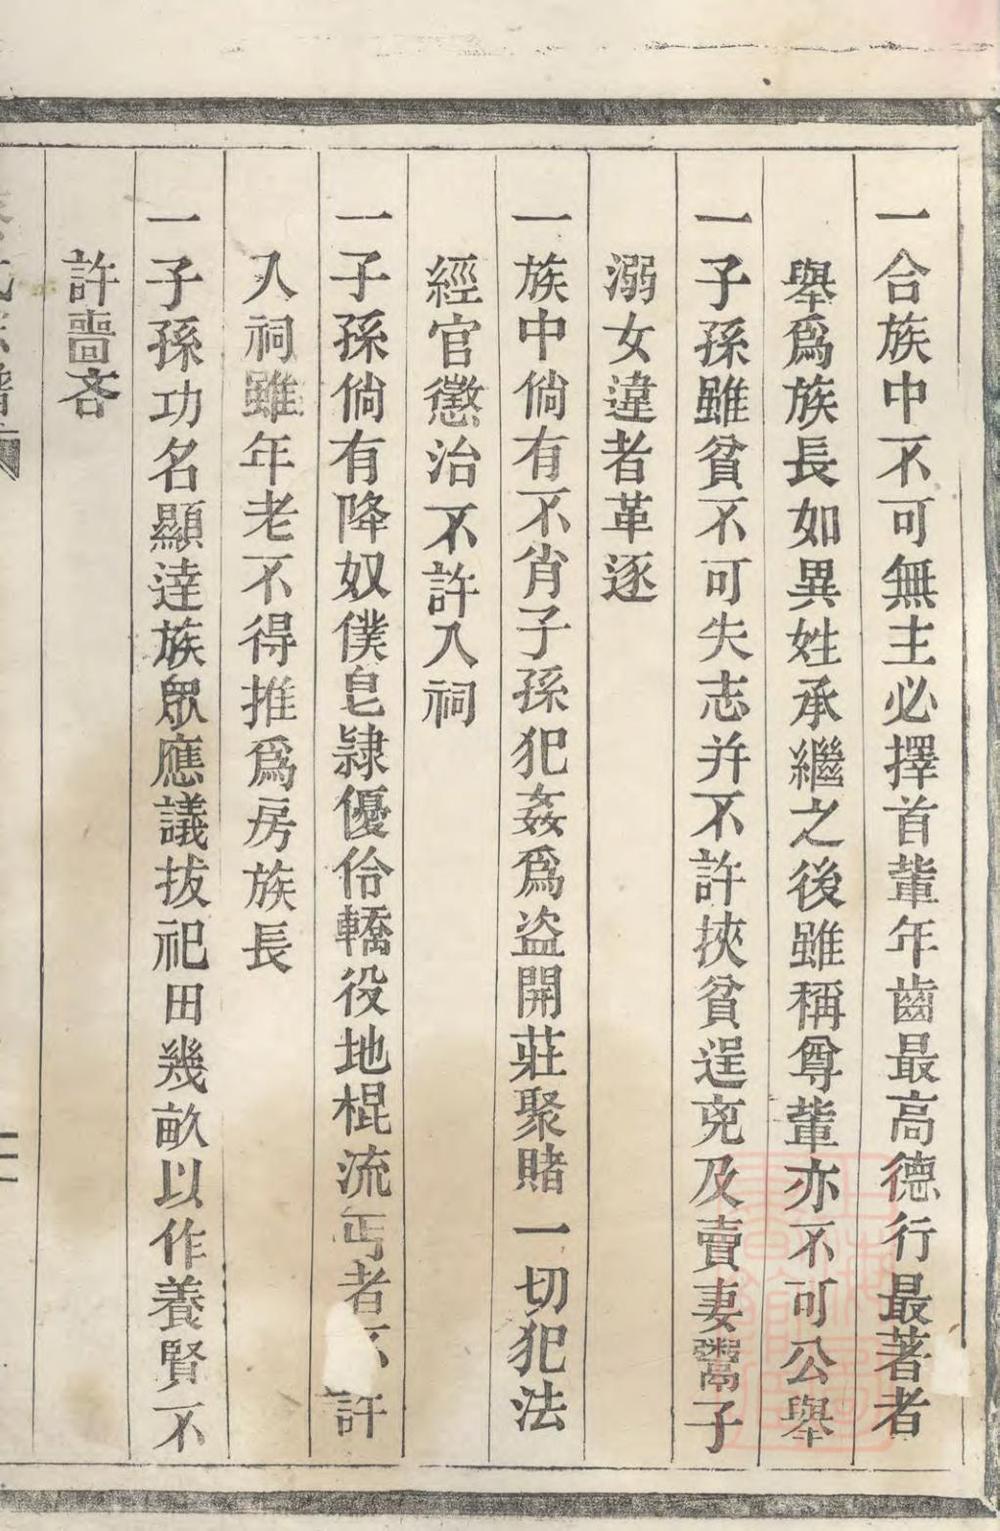 一合族中不可無主必擇首輩年齒最高德行最著者
舉爲族長如異姓承繼之後雖稱尊輩亦不可公舉
一子孫雖貧不可失志并不許挾貧逞兇及賣妻鬻子
溺女違者革逐
一族中倘有不肖子孫犯姦爲盜開莊聚賭一切犯法
經官懲治不許入祠
一子孫倘有降奴僕皂隷優伶轎役地棍流丐者不許
入祠雖年老不得推爲房族長
一子孫功名顯達族眾應議拔祀田幾畝以作養賢不
許嗇吝